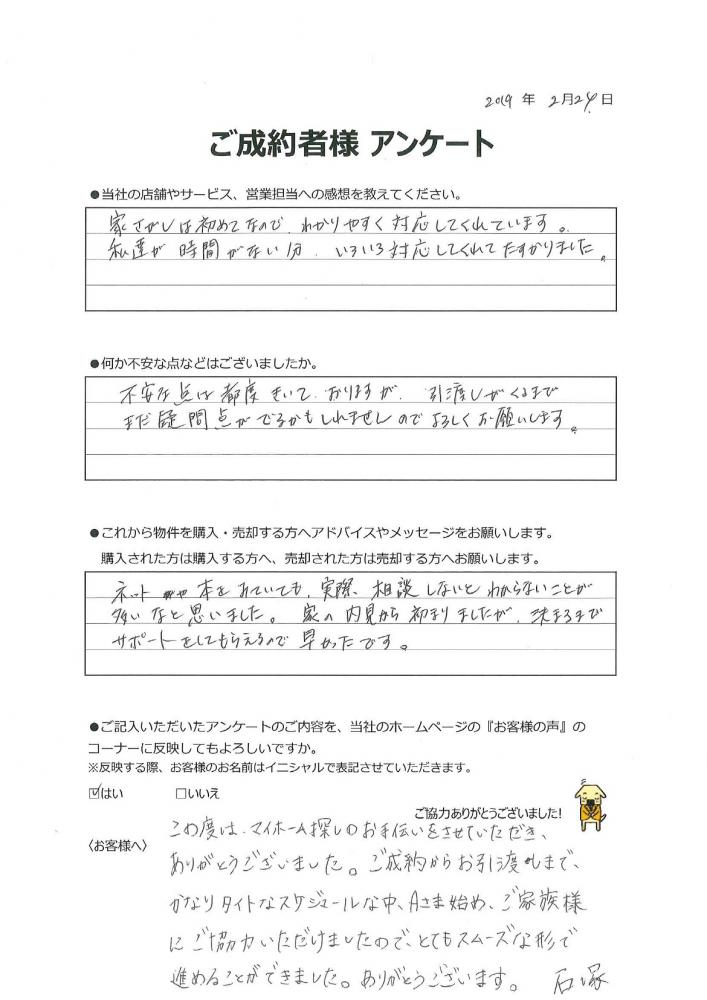 2019 年 2月24日
ご成約者様 アンケート
●当社の店舗やサービス、営業担当への感想を教えてください。
家さがしは初めてなので、わかりやすく対応してくれています。
私達が時間がない分、いろいろ対応してくれてたすかりました。
●何か不安な点などはございましたか。
不安な点は都度きいておりますが、引渡しがくるまで
まだ疑問点がでるかもしれませんのでよろしくお願いします。
●これから物件を購入・売却する方へアドバイスやメッセージをお願いします。
購入された方は購入する方へ、売却された方は売却する方へお願いします。
ネットや本をみていても、実際、相談しないとわからないことが
多いなと思いました。家の内見から初まりましたが、決まるまで
サポートをしてもらえるので早かったです。
●ご記入いただいたアンケートのご内容を、当社のホームページの『お客様の声』の
コーナーに反映してもよろしいですか。
※反映する際、お客様のお名前はイニシャルで表記させていただきます。
☑はい □いいえ
ご協力ありがとうございました!
〈お客様へ〉
この度は、マイホーム探しのお手伝いをさせていただき、
ありがとうございました。ご成約からお引渡しまで、
かなりタイトなスケジュールな中、Aさま始め、ご家族様
にご協力いただけましたので、とてもスムーズな形で
進めることができました。ありがとうございます。 石塚